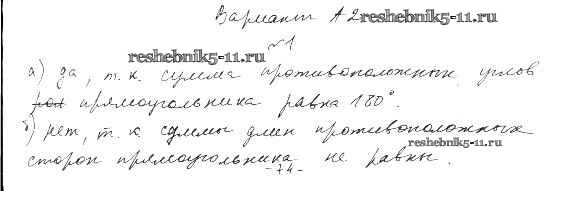 Вариант А2 reshebnik5-11.ru
reshebnik5-11.ru №1
а) да, т.к. сумма противоположных углов
прямоугольника равна 180°.
б) нет, т.к суммы длин противоположных
reshebnik5-11.ru
сторон прямоугольника не равны.
-74-